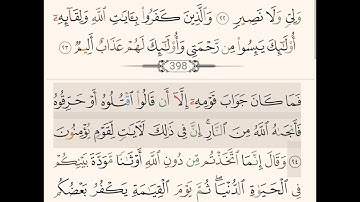 وَلِىٍّ وَلَا نَصِيرٍ ٢٢ وَٱلَّذِينَ كَفَرُوا۟ بِـَٔايَٰتِ ٱللَّهِ وَلِقَآئِهِۦٓ
أُو۟لَٰٓئِكَ يَئِسُوا۟ مِن رَّحْمَتِى وَأُو۟لَٰٓئِكَ لَهُمْ عَذَابٌ أَلِيمٌ ٢٣
398
فَمَا كَانَ جَوَابَ قَوْمِهِۦٓ إِلَّآ أَن قَالُوا۟ ٱقْتُلُوهُ أَوْ حَرِّقُوهُ
فَأَنجَىٰهُ ٱللَّهُ مِنَ ٱلنَّارِ ۚ إِنَّ فِى ذَٰلِكَ لَـَٔايَٰتٍ لِّقَوْمٍ يُؤْمِنُونَ
٢٤ وَقَالَ إِنَّمَا ٱتَّخَذْتُم مِّن دُونِ ٱللَّهِ أَوْثَٰنًا مَّوَدَّةَ بَيْنِكُمْ
فِى ٱلْحَيَوٰةِ ٱلدُّنْيَا ۖ ثُمَّ يَوْمَ ٱلْقِيَٰمَةِ يَكْفُرُ بَعْضُكُم